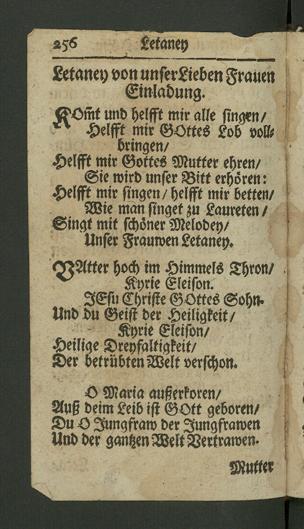 256 Letaney
Letaney von unser Lieben Frauen
Einladung.
KOm̃t und helfft mir alle singen/
Helfft mir GOttes Lob voll-
bringen/
Helfft mir Gottes Mutter ehren/
Sie wird unser Bitt erhören:
Helfft mir singen/ helfft mir betten/
Wie man singet zu Laureten/
Singt mit schöner Melodey/
Unser Frauwen Letaney.
VAtter hoch im Himmels Thron/
Kyrie Eleison.
JEsu Christe GOttes Sohn.
Und du Geist der Heiligkeit/
Kyrie Eleison/
Heilige Dreyfaltigkeit/
Der betrübten Welt verschon.
O Maria außerkoren/
Auß deim Leib ist GOtt geboren/
Du O Jungfraw der Jungfrawen
Und der gantzen Welt Vertrawen.
Mutter